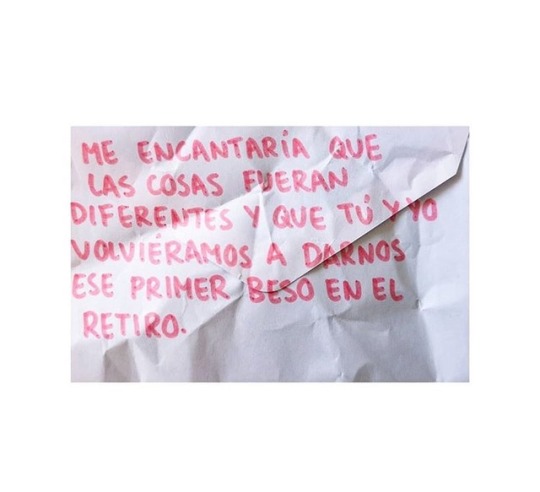 ME ENCANTARÍA QUE
LAS COSAS FUERAN
DIFERENTES Y QUE TÚ Y YO
VOLVIÉRAMOS A DARNOS
ESE PRIMER BESO EN EL
RETIRO.